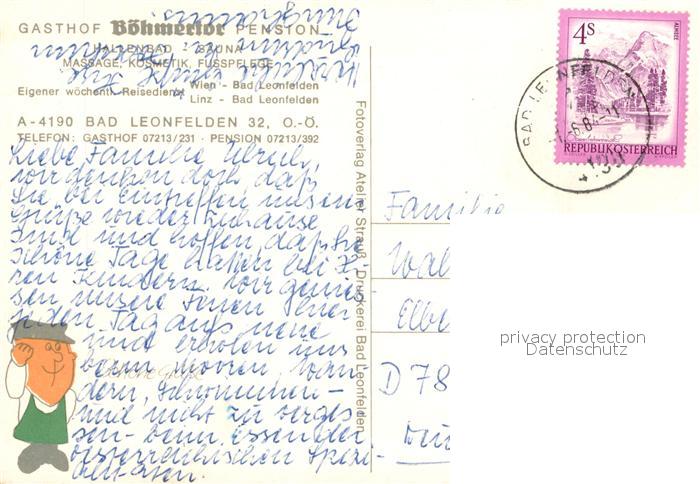 GASTHOF Böhmertor PENSION
HALLENBAD - SAUNA
MASSAGE, KOSMETIK, FUSSPFLEGE
Eigener wöchentl. Reisedienst
Wien - Bad Leonfelden
Linz - Bad Leonfelden
A-4190 BAD LEONFELDEN 32, O.-Ö.
TELEFON: GASTHOF 07213/231 · PENSION 07213/392
Liebe Familie
wir denken doch, daß
Sie bei eintreffen unserer
Grüße wieder zuhause
sind und hoffen, daß Sie
schöne Tage hatten bei Ih-
ren Kindern. Wir genies-
sen unsere Ferien hier
jeden Tag aufs neue
und erholen uns
beim wandern,
schwimmen -
und nicht zu verges-
sen - beim essen der
österreichischen Spezi-
alitäten.
Fotoverlag Atelier Strauß / Druckerei Bad Leonfelden
4 S
ALMSEE
REPUBLIK ÖSTERREICH
BAD LEONFELDEN
4190
Familie
Wal
Elbe
D 78
privacy protection
Datenschutz